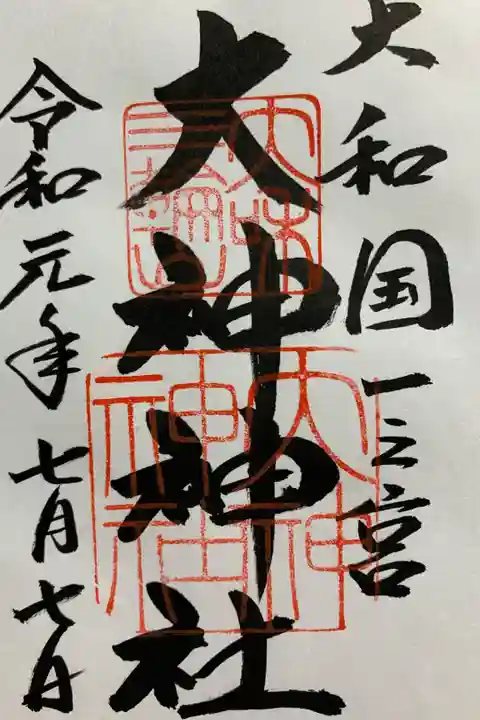 大和国一之宮
大神神社
令和元年七月七日
大和
三輪山
大神
神社